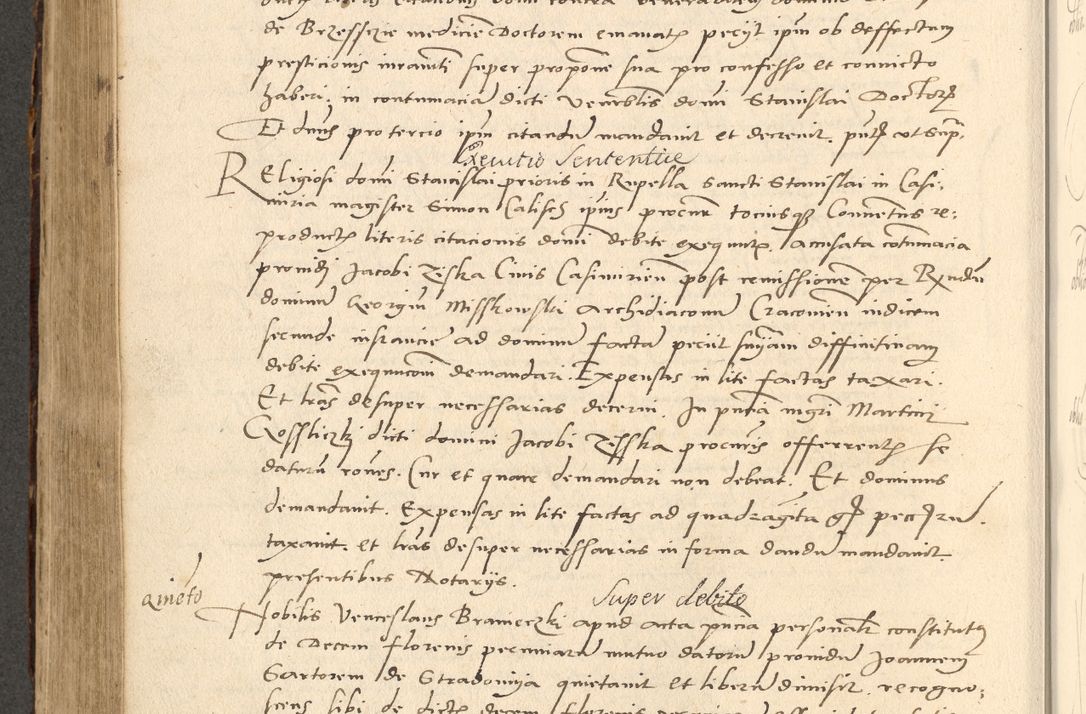 de Brzessczie medicine Doctorem emanatar peciit ipm ob deffectum
presticionis iuramti super propone sua pro confesso et convicto
haberi, in contumacia dicti venerblis domi Stanislai Doctor
Et dnus pro tercio ipm citandu mandavit et decrevit, pntt ut sup
Executio Sententiae
Religiosi domi Stanislai prioris in Rupella sancti Stanislai in Casi,
miria magister Simon Calisch ipius procur tociusq Conventus re:
product literis citacionis domi debite exequut. Accusata cotumacia
providi Jacobi Ziska Civis Casimirien post remissione per Rndu
dominum Georgiu Misskowski Archidiaconu Cracovien iudicem
secunde instancie ad dominu facta peciit snyam diffinitivam
debite exequucom demandari. Expensas in lite factas taxari.
Et lras desuper necessarias decerni. In pntia mgri Martini
Gossliczki dicti domini Jacobi Zisska procuris offerrent se
daturu rones. Cur et quare demandari non debeat. Et dominus
demandavit. Expensas in lite factas ad quadraginta gr
taxavit. et lras desuper necessarias in forma dandu mandavit
presentibus Notariis.
Super debito
quieto
Nobilis Venceslaus Branieczki apud acta pntia personalr constitut
de Decem florenis pecuniaru mutuo datoru providu Joannem
Sartorem de Stradomya quietavit et liberu dimisit, recogno:
scens sibi de dict decem florenis